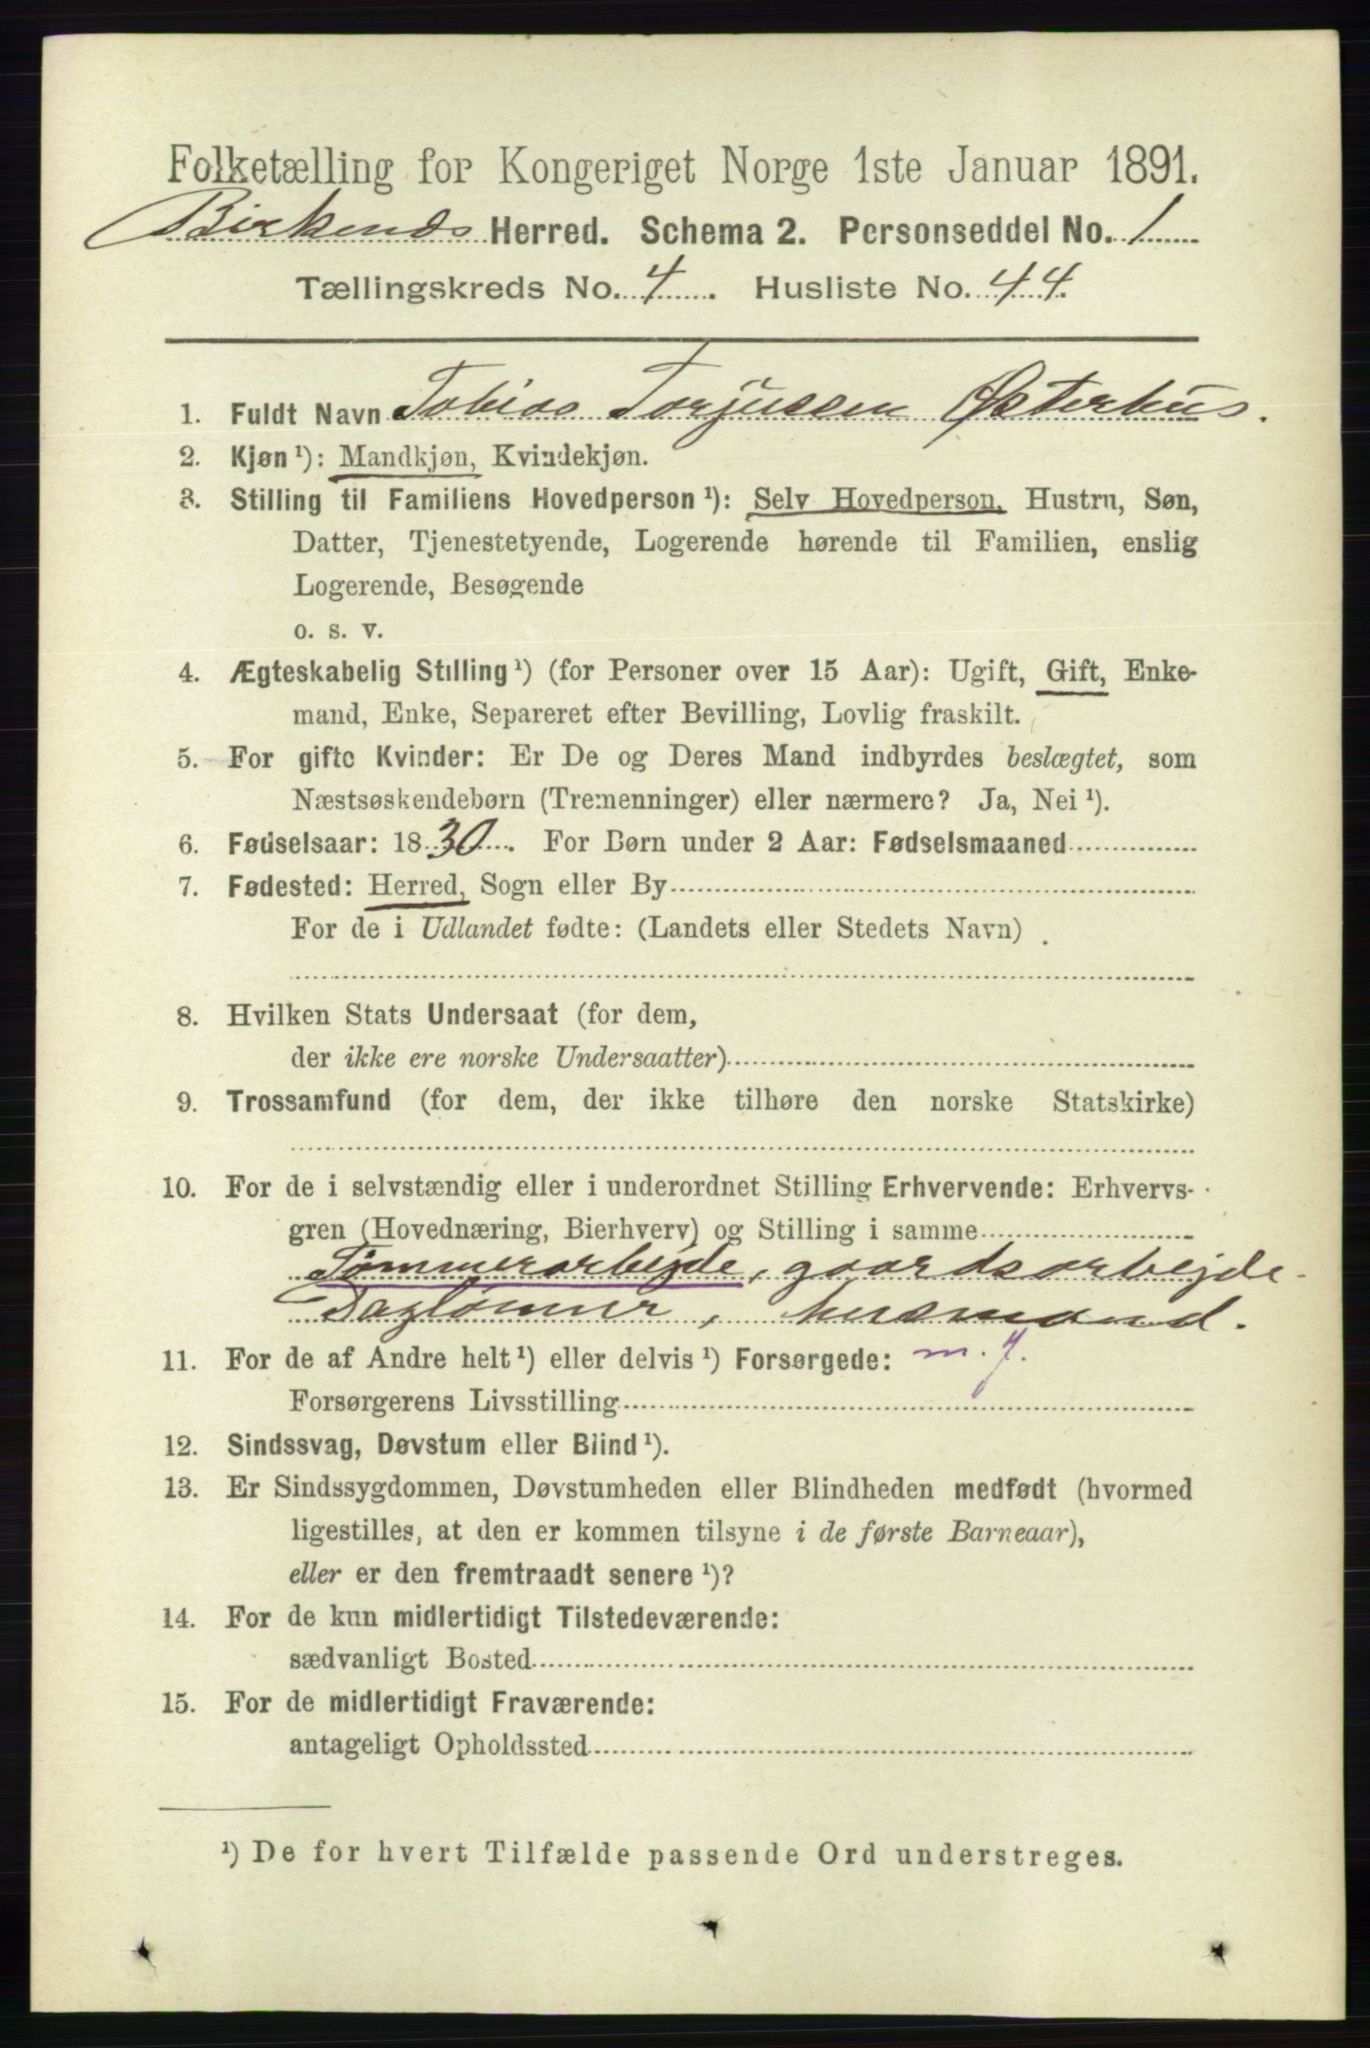 Folketælling for Kongeriget Norge 1ste Januar 1891.
Birkenæs Herred. Schema 2. Personseddel No. 1
Tællingskreds No. 4. Husliste No. 44.
1. Fuldt Navn Tobias Torjussen Østerhus.
2. Kjøn ¹): Mandkjøn, Kvindekjøn.
3. Stilling til Familiens Hovedperson ¹): Selv Hovedperson, Hustru, Søn,
Datter, Tjenestetyende, Logerende hørende til Familien, enslig
Logerende, Besøgende
o. s. v.
4. Ægteskabelig Stilling ¹) (for Personer over 15 Aar): Ugift, Gift, Enke-
mand, Enke, Separeret efter Bevilling, Lovlig fraskilt.
5. For gifte Kvinder: Er De og Deres Mand indbyrdes beslægtet, som
Næstsøskendebørn (Tremenninger) eller nærmere? Ja, Nei ¹).
6. Fødselsaar: 1830. For Børn under 2 Aar: Fødselsmaaned
7. Fødested: Herred, Sogn eller By
For de i Udlandet fødte: (Landets eller Stedets Navn)
8. Hvilken Stats Undersaat (for dem,
der ikke ere norske Undersaatter)
9. Trossamfund (for dem, der ikke tilhøre den norske Statskirke)
10. For de i selvstændig eller i underordnet Stilling Erhvervende: Erhvervs-
gren (Hovednæring, Bierhverv) og Stilling i samme
Tømmerarbejde, gaardsarbejde
Daglønner, husmand.
m. j.
11. For de af Andre helt ¹) eller delvis ¹) Forsørgede:
Forsørgerens Livsstilling
12. Sindssvag, Døvstum eller Blind ¹).
13. Er Sindssygdommen, Døvstumheden eller Blindheden medfødt (hvormed
ligestilles, at den er kommen tilsyne i de første Barneaar),
eller er den fremtraadt senere ¹)?
14. For de kun midlertidigt Tilstedeværende:
sædvanligt Bosted
15. For de midlertidigt Fraværende:
antageligt Opholdssted
¹) De for hvert Tilfælde passende Ord understreges.